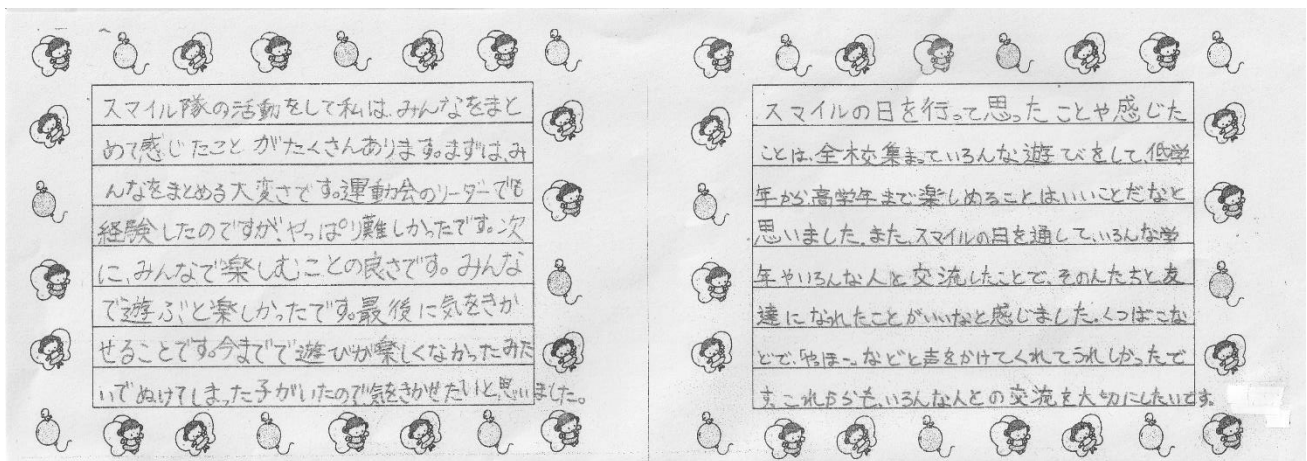 スマイル隊の活動をして私は、みんなをまと
めて感じたことがたくさんあります。まずは、み
んなをまとめる大変さです。運動会のリーダーでも
経験したのですが、やっぱり難しかったです。次
に、みんなで楽しむことの良さです。みんな
で遊ぶと楽しかったです。最後に気をきか
せることです。今までで遊びが楽しくなかったみた
いでぬけてしまった子がいたので気をきかせたいと、思いました。
スマイルの日を行って思ったことや感じた
ことは、全校集まっていろんな遊びをして、低学
年から高学年まで楽しめることはいいことだなと
思いました。また、スマイルの日を通して、いろんな学
年やいろんな人と交流したことで、その人たちと友
達になれたことがいいなと感じました。くつばこな
どで、「やほ〜」などと声をかけてくれてうれしかったで
す。これからも、いろんな人との交流を大切にしたいです。